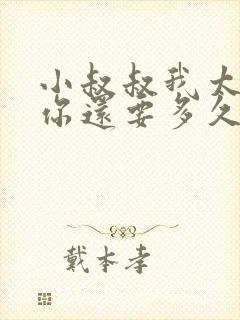 小叔叔我太
你還要多久
戴本孝